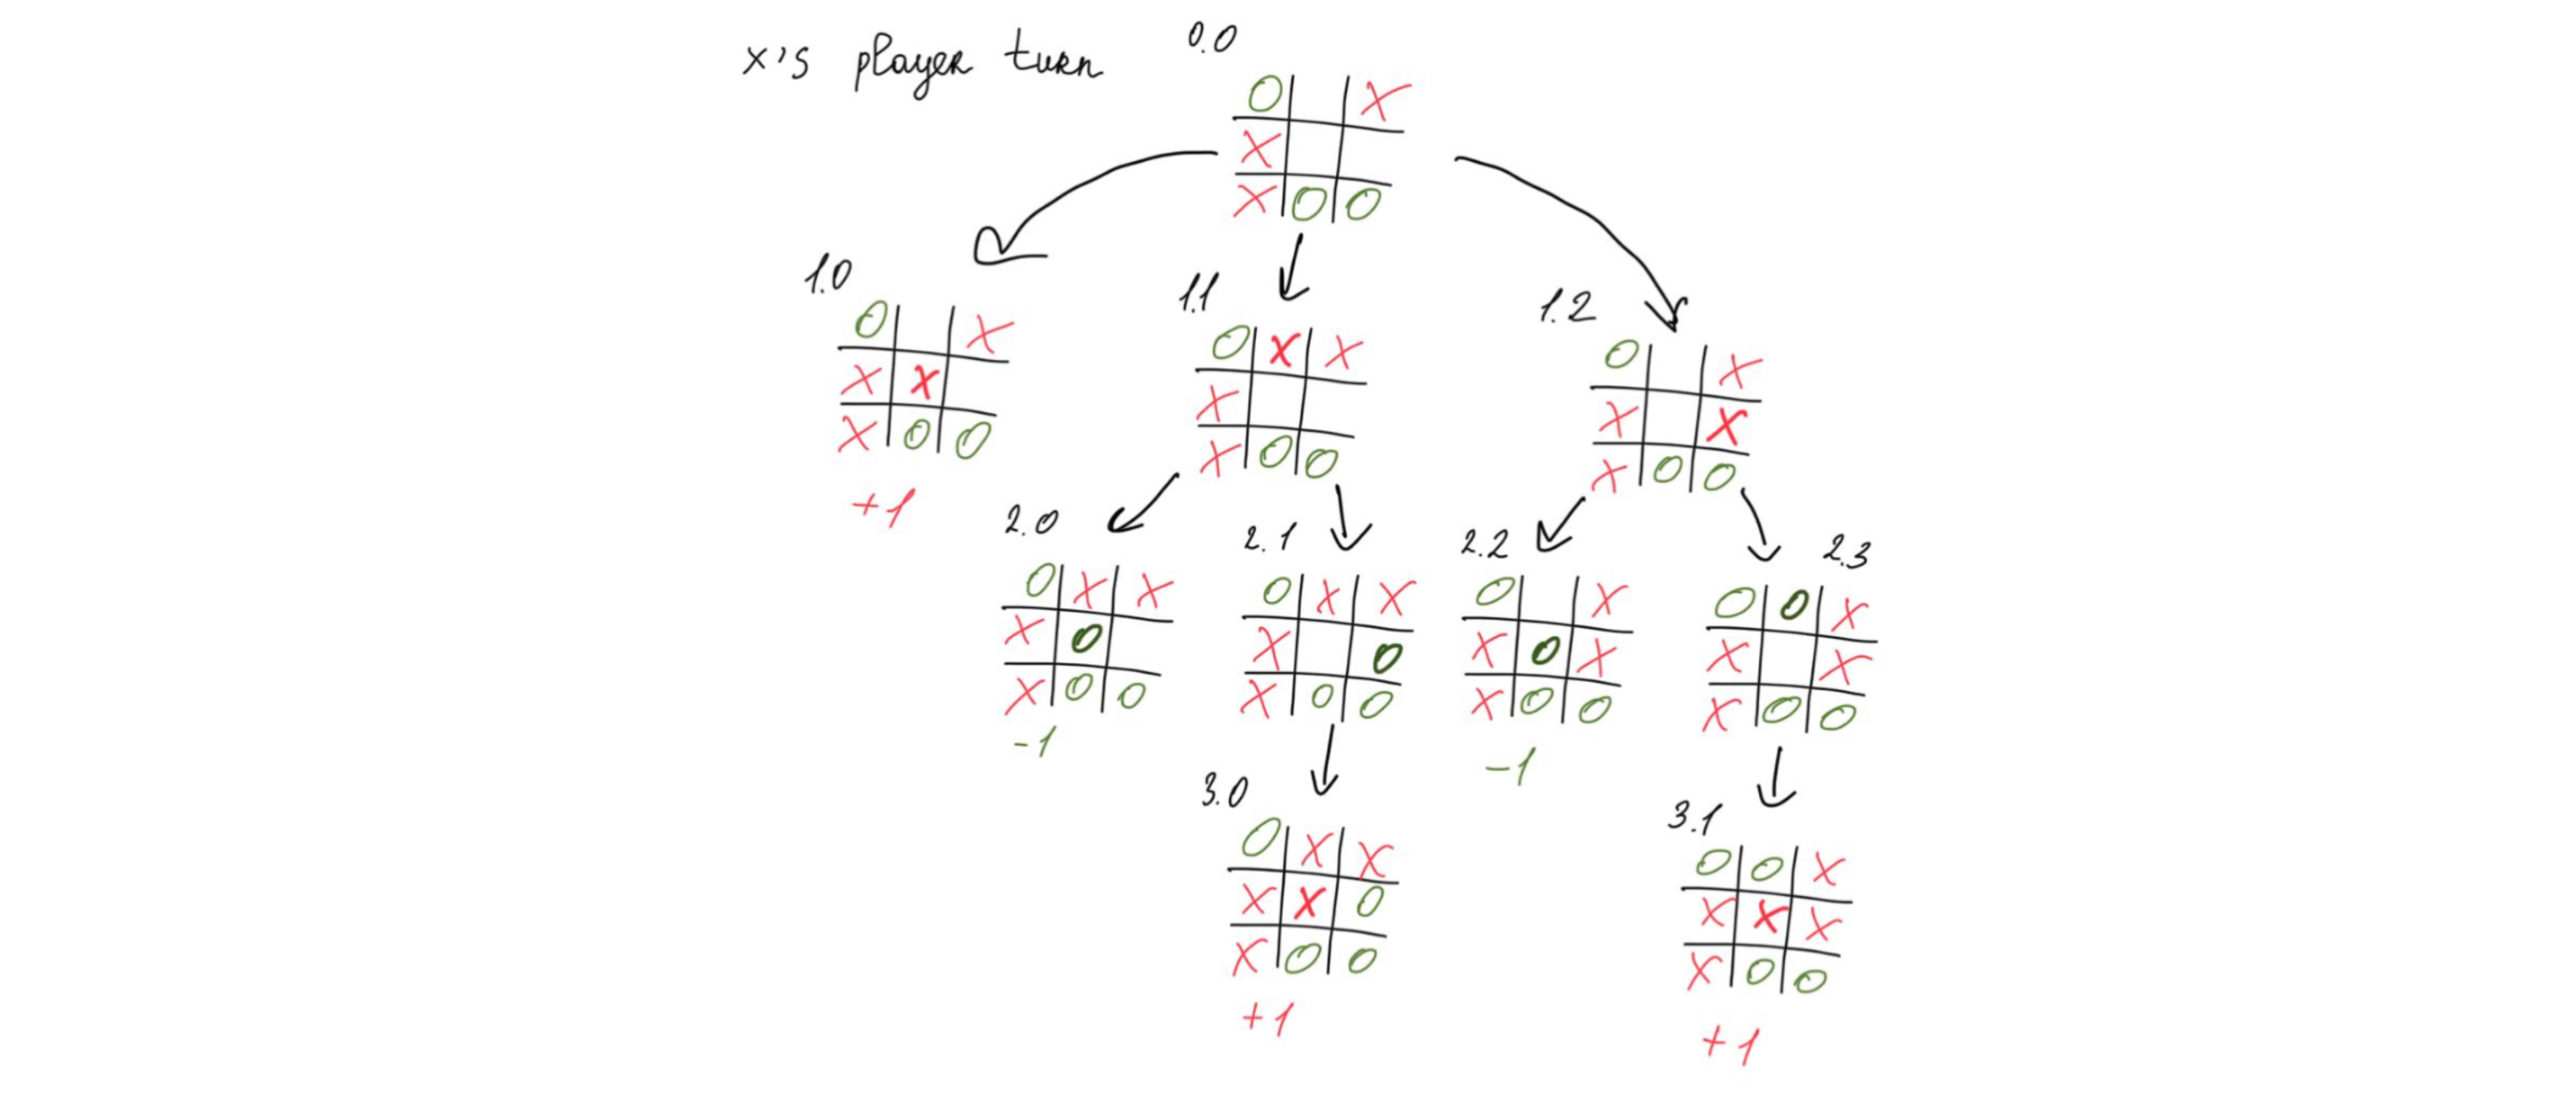 x's player turn
0.0
O X
X
X O O
1.0
O X
X X
X O O
+1
1.1
O X X
X
X O O
1.2
O X
X X
X O O
2.0
O X X
X O
X O O
-1
2.1
O X X
X O
X O O
2.2
O X
X O X
X O O
-1
2.3
O O X
X X
X O O
3.0
O X X
X X O
X O O
+1
3.1
O O X
X X X
X O O
+1